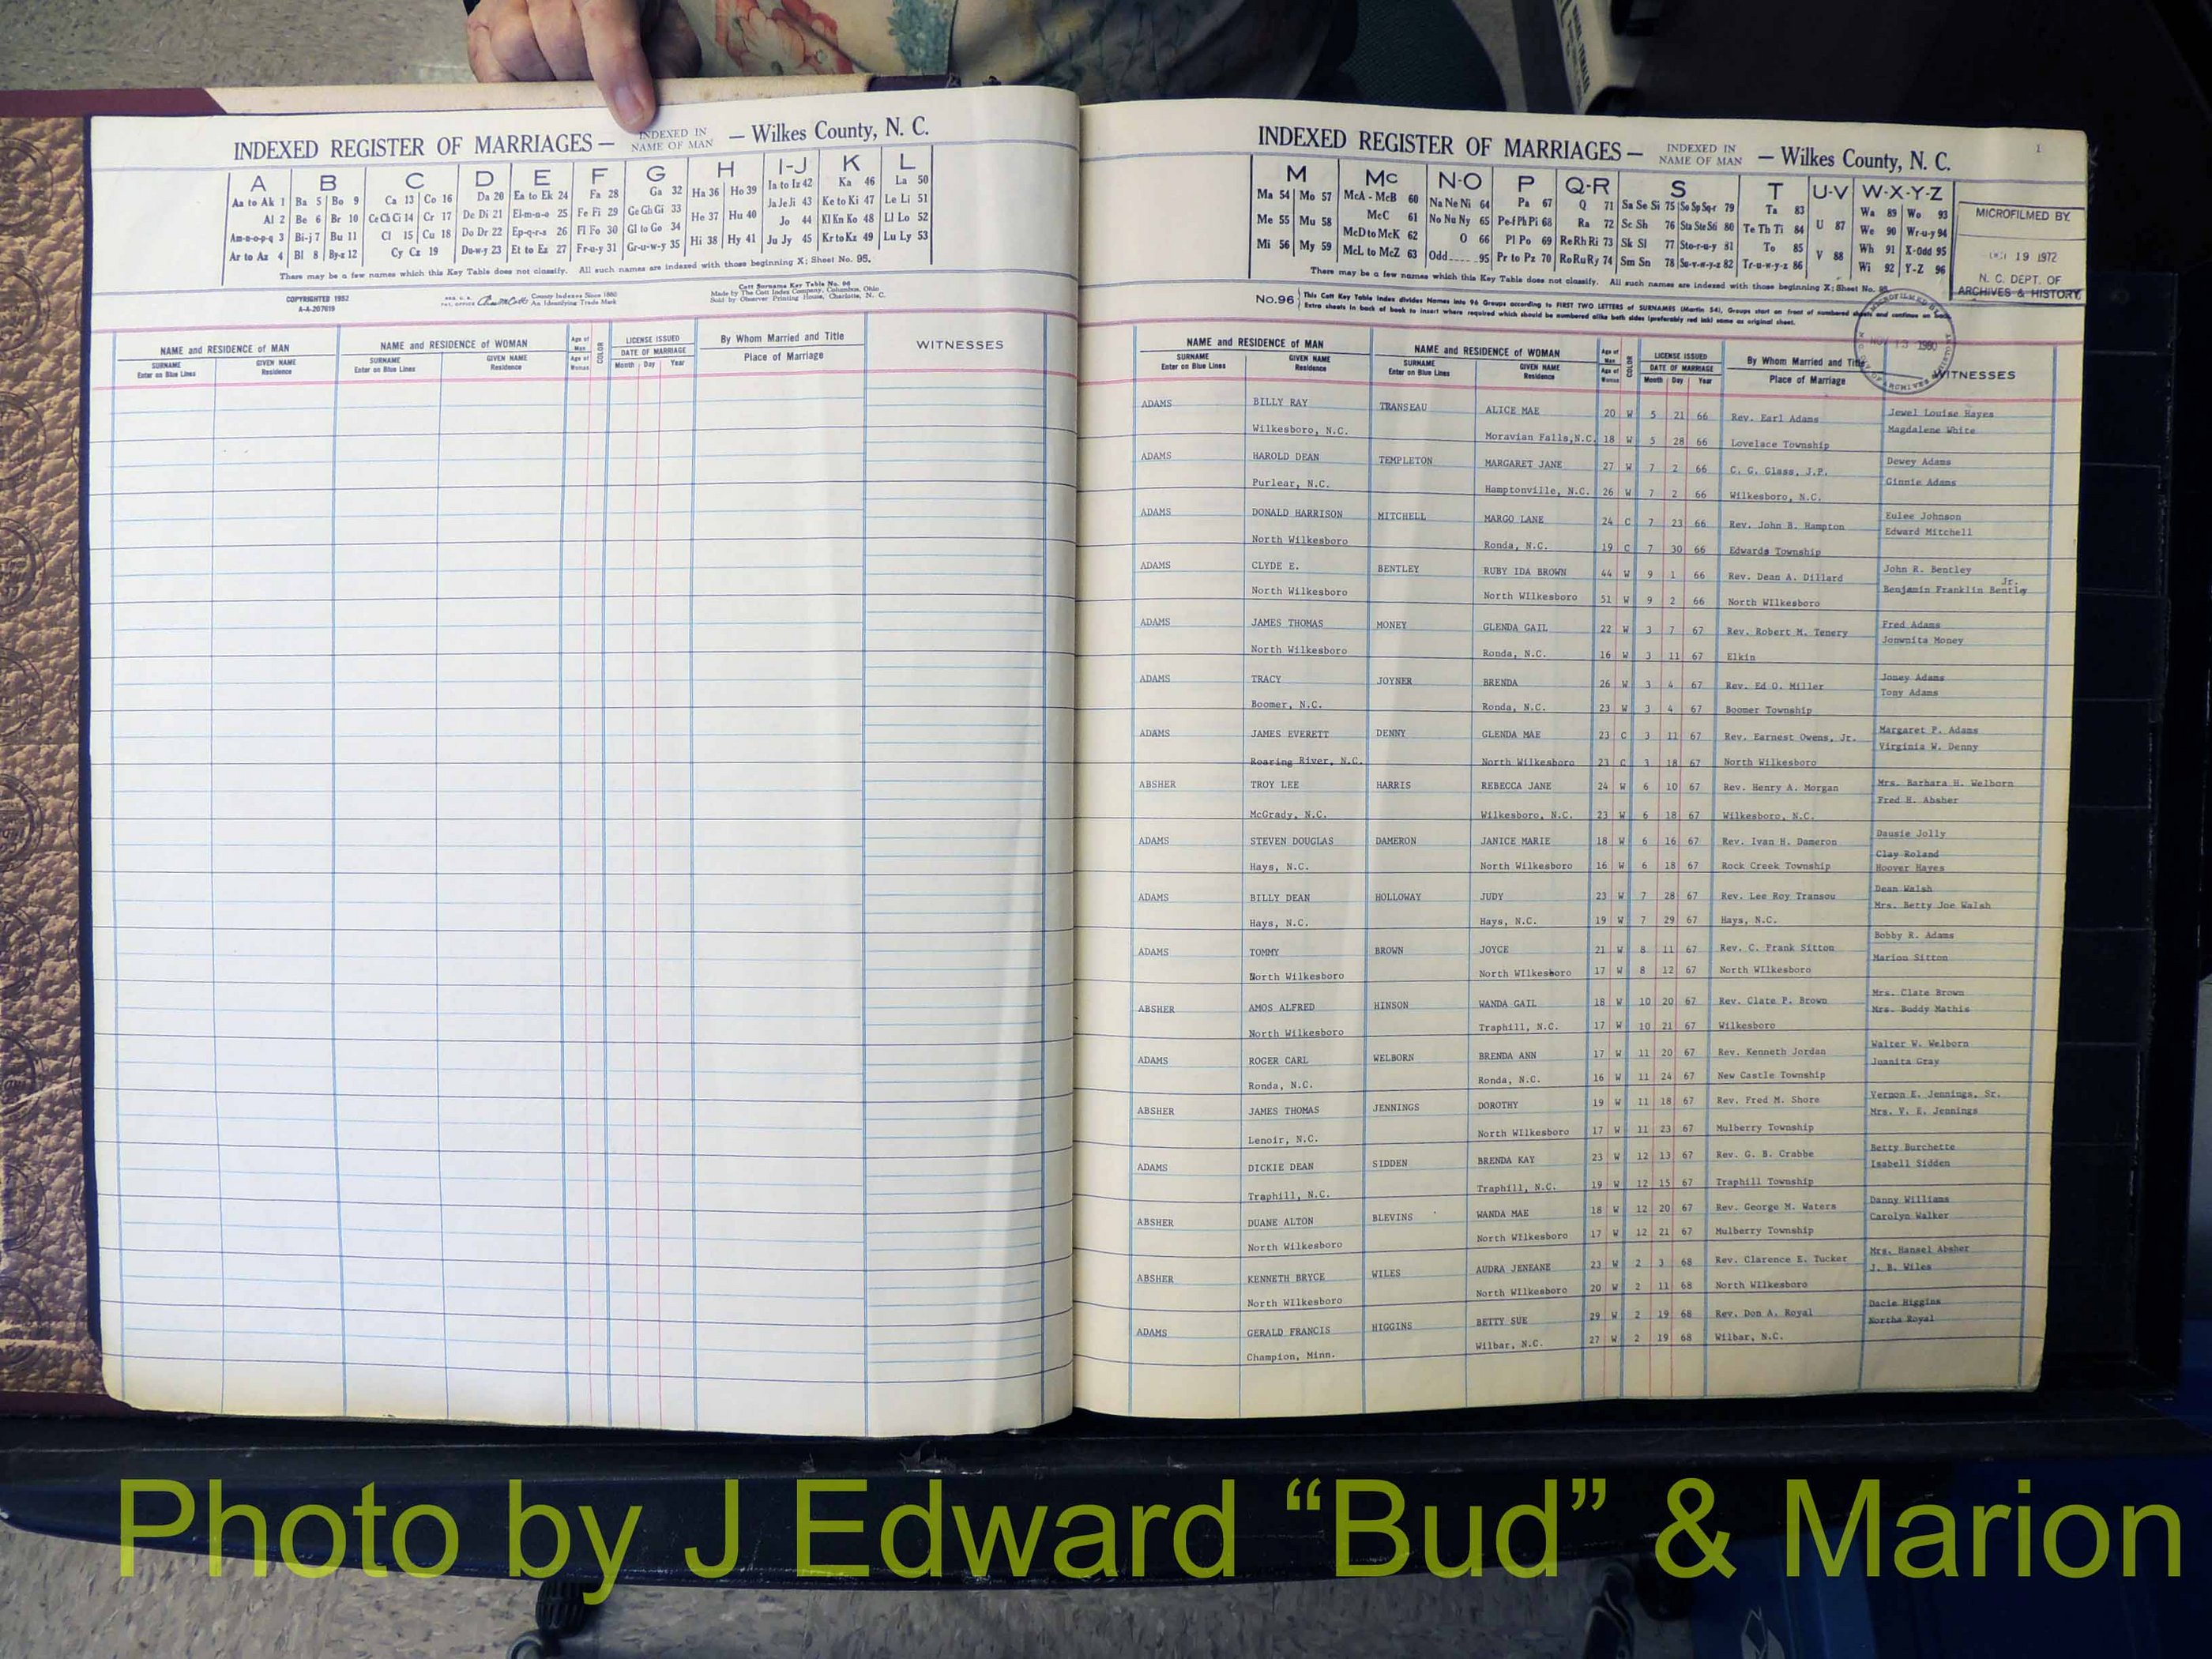 INDEXED REGISTER OF MARRIAGES — INDEXED IN NAME OF MAN — Wilkes County, N. C.
A B C D E F G H I-J K L
Aa to Ak 1 Ba 5 Bo 9 Ca 13 Co 16 Da 20 Ea to Ek 24 Fa 28 Ga 32 Ha 36 Ho 39 Ia to Iz 42 Ka 46 La 50
Al 2 Be 6 Br 10 Ce Ch Ci 14 Cr 17 De Di 21 El-m-n-o 25 Fe Fi 29 Ge Gh Gi 33 He 37 Hu 40 Ja Je Ji 43 Ke to Ki 47 Le Li 51
Am-n-o-p-q 3 Bi-j 7 Bu 11 Cl 15 Cu 18 Do Dr 22 Ep-q-r-s 26 Fl Fo 30 Gl to Go 34 Hi 38 Hy 41 Jo 44 Kl Kn Ko 48 Ll Lo 52
Ar to Az 4 Bl 8 By-z 12 Cy Cz 19 Du-w-y 23 Et to Ez 27 Fr-u-y 31 Gr-u-w-y 35 Ju Jy 45 Kr to Kz 49 Lu Ly 53
There may be a few names which this Key Table does not classify. All such names are indexed with those beginning X; Sheet No. 95.
COPYRIGHTED 1952
A-A-207619
County Indexes Since 1880
An Identifying Trade Mark
Cott Surname Key Table No. 96
Made by The Cott Index Company, Columbus, Ohio
Sold by Observer Printing House, Charlotte, N. C.
NAME and RESIDENCE OF MAN NAME and RESIDENCE OF WOMAN Age of Man Age of Woman COLOR LICENSE ISSUED DATE OF MARRIAGE By Whom Married and Title WITNESSES
SURNAME Enter on Blue Lines GIVEN NAME Residence SURNAME Enter on Blue Lines GIVEN NAME Residence Month Day Year Place of Marriage
INDEXED REGISTER OF MARRIAGES — INDEXED IN NAME OF MAN — Wilkes County, N. C.
1
M Mc N-O P Q-R S T U-V W-X-Y-Z
Ma 54 Mo 57 McA - McB 60 Na Ne Ni 64 Pa 67 Q 71 Sa Se Si 75 So Sp Sq-r 79 Ta 83 U 87 Wa 89 Wo 93
Me 55 Mu 58 McC 61 No Nu Ny 65 Pe-f Ph Pi 68 Ra 72 Sc Sh 76 Sta Ste Sti 80 Te Th Ti 84 V 88 We 90 Wr-u-y 94
Mi 56 My 59 McD to McK 62 O 66 Pl Po 69 Re Rh Ri 73 Sk Sl 77 Sto-r-u-y 81 To 85 Wh 91 X-Odd 95
McL to McZ 63 Odd 95 Pr to Pz 70 Ro Ru Ry 74 Sm Sn 78 Su-v-w-y-z 82 Tr-u-w-y-z 86 Wi 92 Y-Z 96
MICROFILMED BY
19 1972
N. C. DEPT. OF
ARCHIVES & HISTORY
There may be a few names which this Key Table does not classify. All such names are indexed with those beginning X; Sheet No. 95
No. 96 This Cott Key Table Index divides Names into 96 Groups according to FIRST TWO LETTERS of SURNAMES (Martin 54), Groups start on front of numbered sheets and continue on back
Extra sheets in back of book to insert where required which should be numbered alike both sides (preferably red ink) same as original sheet.
MICROFILMED
NOV 13 1980
NAME and RESIDENCE OF MAN NAME and RESIDENCE OF WOMAN Age of Man Age of Woman COLOR LICENSE ISSUED DATE OF MARRIAGE By Whom Married and Title WITNESSES
SURNAME Enter on Blue Lines GIVEN NAME Residence SURNAME Enter on Blue Lines GIVEN NAME Residence Month Day Year Place of Marriage
ADAMS BILLY RAY TRANSEAU ALICE MAE 20 W 5 21 66 Rev. Earl Adams Jewel Louise Hayes
Wilkesboro, N.C. Moravian Falls,N.C. 18 W 5 28 66 Lovelace Township Magdalene White
ADAMS HAROLD DEAN TEMPLETON MARGARET JANE 27 W 7 2 66 C. G. Glass, J.P. Dewey Adams
Purlear, N.C. Hamptonville, N.C. 26 W 7 2 66 Wilkesboro, N.C. Ginnie Adams
ADAMS DONALD HARRISON MITCHELL MARGO LANE 24 C 7 23 66 Rev. John B. Hampton Eulee Johnson
North Wilkesboro Ronda, N.C. 19 C 7 30 66 Edwards Township Edward Mitchell
ADAMS CLYDE E. BENTLEY RUBY IDA BROWN 44 W 9 1 66 Rev. Dean A. Dillard John R. Bentley
North Wilkesboro North WIlkesboro 51 W 9 2 66 North WIlkesboro Benjamin Franklin Bentley Jr.
ADAMS JAMES THOMAS MONEY GLENDA GAIL 22 W 3 7 67 Rev. Robert M. Tenery Fred Adams
North Wilkesboro Ronda, N.C. 16 W 3 11 67 Elkin Jonwnita Money
ADAMS TRACY JOYNER BRENDA 26 W 3 4 67 Rev. Ed O. Miller Joney Adams
Boomer, N.C. Ronda, N.C. 23 W 3 4 67 Boomer Township Tony Adams
ADAMS JAMES EVERETT DENNY GLENDA MAE 23 C 3 11 67 Rev. Earnest Owens, Jr. Margaret P. Adams
Roaring River, N.C. North Wilkesboro 23 C 3 18 67 North Wilkesboro Virginia W. Denny
ABSHER TROY LEE HARRIS REBECCA JANE 24 W 6 10 67 Rev. Henry A. Morgan Mrs. Barbara H. Welborn
McGrady, N.C. Wilkesboro, N.C. 23 W 6 18 67 Wilkesboro, N.C. Fred H. Absher
ADAMS STEVEN DOUGLAS DAMERON JANICE MARIE 18 W 6 16 67 Rev. Ivan H. Dameron Dausie Jolly
Clay Roland
Hays, N.C. North Wilkesboro 16 W 6 18 67 Rock Creek Township Hoover Hayes
ADAMS BILLY DEAN HOLLOWAY JUDY 23 W 7 28 67 Rev. Lee Roy Transou Dean Walsh
Hays, N.C. Hays, N.C. 19 W 7 29 67 Hays, N.C. Mrs. Betty Joe Walsh
ADAMS TOMMY BROWN JOYCE 21 W 8 11 67 Rev. C. Frank Sitton Bobby R. Adams
North Wilkesboro North WIlkesboro 17 W 8 12 67 North WIlkesboro Marion Sitton
ABSHER AMOS ALFRED HINSON WANDA GAIL 18 W 10 20 67 Rev. Clate P. Brown Mrs. Clate Brown
North Wilkesboro Traphill, N.C. 17 W 10 21 67 Wilkesboro Mrs. Buddy Mathis
ADAMS ROGER CARL WELBORN BRENDA ANN 17 W 11 20 67 Rev. Kenneth Jordan Walter W. Welborn
Ronda, N.C. Ronda, N.C. 16 W 11 24 67 New Castle Township Juanita Gray
ABSHER JAMES THOMAS JENNINGS DOROTHY 19 W 11 18 67 Rev. Fred M. Shore Vernon E. Jennings, Sr.
Lenoir, N.C. North WIlkesboro 17 W 11 23 67 Mulberry Township Mrs. V. E. Jennings
ADAMS DICKIE DEAN SIDDEN BRENDA KAY 23 W 12 13 67 Rev. G. B. Crabbe Betty Burchette
Traphill, N.C. Traphill, N.C. 19 W 12 15 67 Traphill Township Isabell Sidden
ABSHER DUANE ALTON BLEVINS WANDA MAE 18 W 12 20 67 Rev. George M. Waters Danny Williams
North Wilkesboro North WIlkesboro 17 W 12 21 67 Mulberry Township Carolyn Walker
ABSHER KENNETH BRYCE WILES AUDRA JENEANE 23 W 2 3 68 Rev. Clarence E. Tucker Mrs. Hansel Absher
North WIlkesboro North WIlkesboro 20 W 2 11 68 North WIlkesboro J. B. Wiles
ADAMS GERALD FRANCIS HIGGINS BETTY SUE 29 W 2 19 68 Rev. Don A. Royal Dacie Higgins
Champion, Minn. Wilbar, N.C. 27 W 2 19 68 Wilbar, N.C. Northa Royal
Photo by J Edward “Bud” & Marion